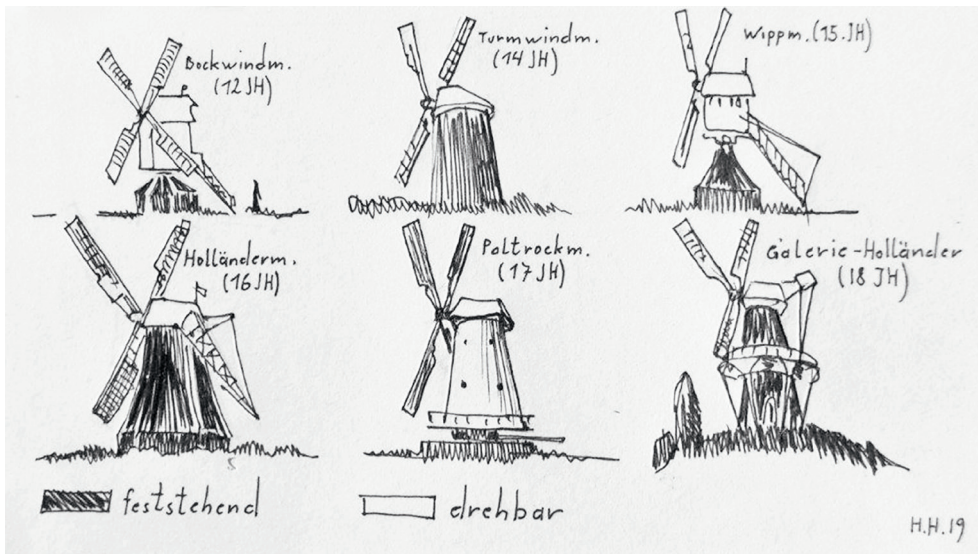 Bockwindm.
(12 JH)
Turmwindm.
(14 JH)
Wippm. (15. JH)
Holländerm.
(16 JH)
Paltrockm.
(17 JH)
Galerie-Holländer
(18 JH)
feststehend
drehbar
H.H. 19